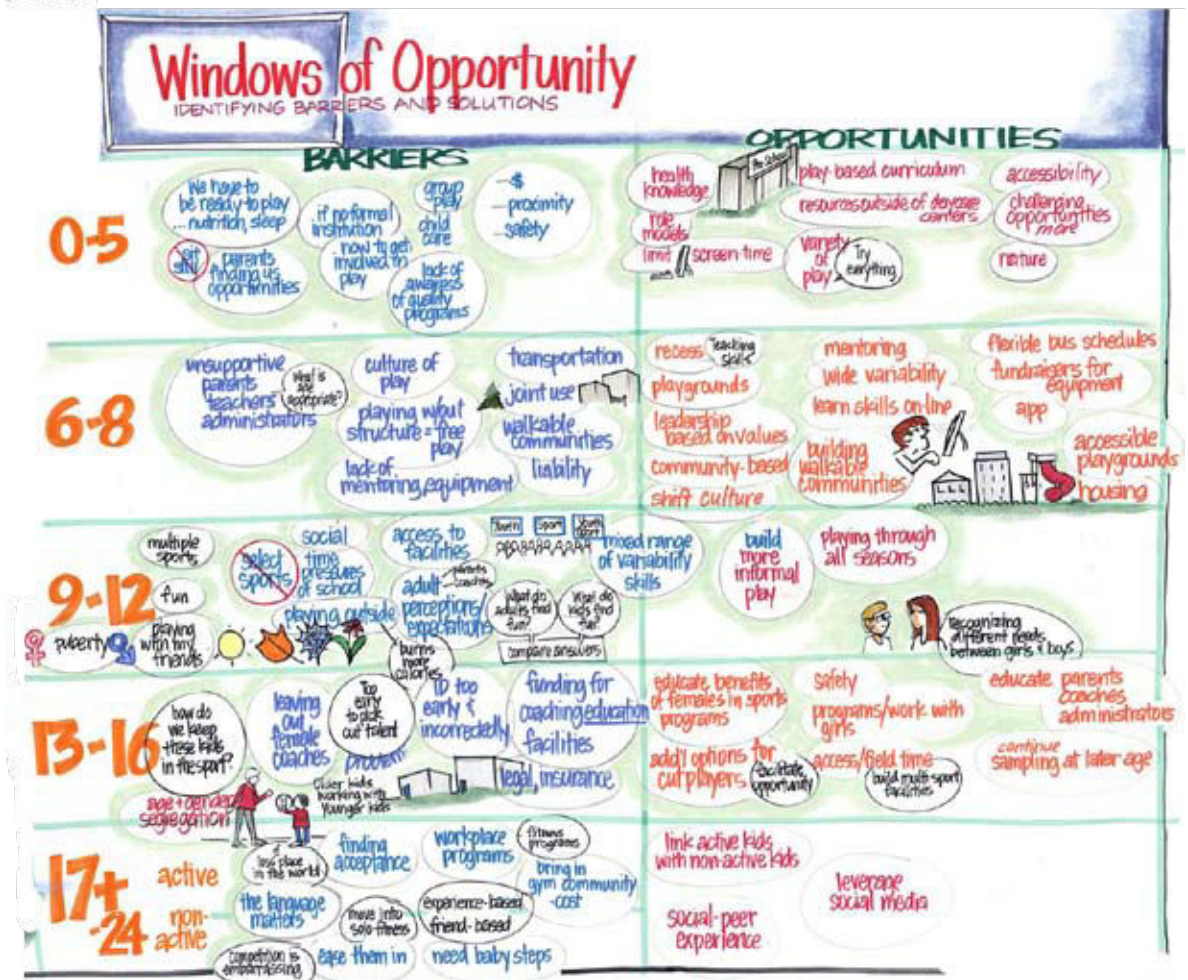 Windows of Opportunity
IDENTIFYING BARRIERS AND SOLUTIONS
BARRIERS
OPPORTUNITIES
0-5
We have to
be ready to play
... nutrition, sleep
sit
still
parents
finding us
opportunities
if no formal
institution
how to get
involved in
play
group
play
child
care
lack of
awareness
of quality
programs
...$
...proximity
...safety
health
knowledge
role
models
limit screen-time
Pre-School
play-based curriculum
resources outside of daycare
centers
variety
of
play
Try
everything
accessibility
challenging
opportunities
more
nature
6-8
unsupportive
parents
teachers
administrators
What is
age
appropriate?
culture of
play
playing w/out
structure = free
play
lack of
mentoring, equipment
transportation
joint use
walkable
communities
liability
recess
teaching
skills
playgrounds
leadership
based on values
community-based
shift culture
mentoring
wide variability
learn skills on-line
building
walkable
communities
flexible bus schedules
fundraisers for
equipment
app
accessible
playgrounds
housing
9-12
multiple
sports
fun
puberty
playing
with my
friends
select
sports
social
time
pressures
of school
playing outside
access to
facilities
adult
parents
coaches
perceptions/
expectations
burns
more
calories
Youth
Sport
Youth
Sport
What do
adults find
fun?
What do
kids find
fun?
compare answers
mixed range
of variability
skills
build
more
informal
play
playing through
all seasons
recognizing
different needs
between girls & boys
13-16
how do
we keep
these kids
in the sport?
age + gender
segregation
leaving
out
female
coaches
Too
early
to pick
out talent
problem
Older kids
working with
Younger kids
ID too
early &
incorrectedly
funding for
coaching education
facilities
legal, insurance
educate benefits
of females in sports
programs
add'l options for
cut players
facilitate
opportunity
safety
programs/work with
girls
access/field time
build multi-sport
facilities
educate parents
coaches
administrators
continue
sampling at later age
17+
-24
active
non-
active
loss place
in the world
the language
matters
competition is
embarrassing
finding
acceptance
move into
solo-fitness
ease them in
workplace
programs
experience-based
friend-based
need baby steps
fitness
programs
bring in
gym community
-cost
link active kids
with non-active kids
social-peer
experience
leverage
social media